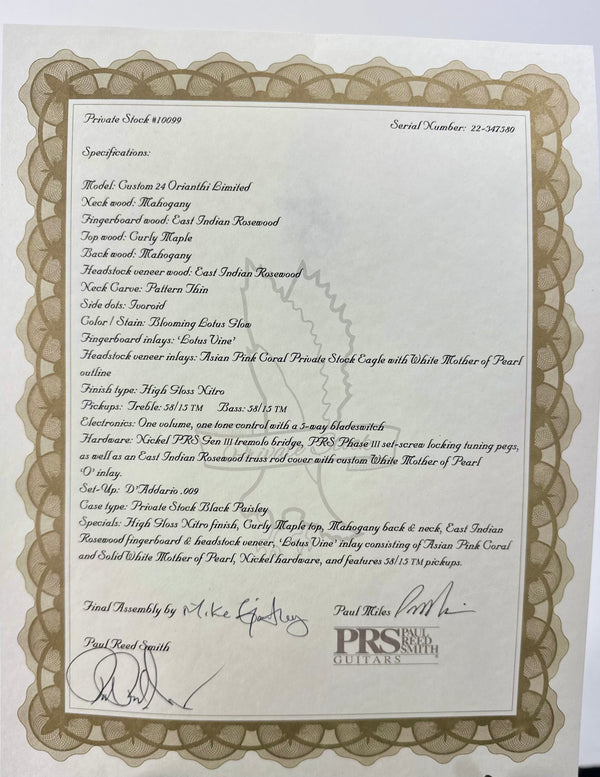 Private Stock #10099
Serial Number: 22-347580
Specifications:
Model: Custom 24 Orianthi Limited
Neck wood: Mahogany
Fingerboard wood: East Indian Rosewood
Top wood: Curly Maple
Back wood: Mahogany
Headstock veneer wood: East Indian Rosewood
Neck Carve: Pattern Thin
Side dots: Ivoroid
Color / Stain: Blooming Lotus Glow
Fingerboard inlays: 'Lotus Vine'
Headstock veneer inlays: Asian Pink Coral Private Stock Eagle with White Mother of Pearl
outline
Finish type: High Gloss Nitro
Pickups: Treble: 58/15 TM Bass: 58/15 TM
Electronics: One volume, one tone control with a 5-way bladeswitch
Hardware: Nickel PRS Gen III tremolo bridge, PRS Phase III set-screw locking tuning pegs,
as well as an East Indian Rosewood truss rod cover with custom White Mother of Pearl
'O' inlay.
Set-Up: D'Addario .009
Case type: Private Stock Black Paisley
Specials: High Gloss Nitro finish, Curly Maple top, Mahogany back & neck, East Indian
Rosewood fingerboard & headstock veneer, 'Lotus Vine' inlay consisting of Asian Pink Coral
and Solid White Mother of Pearl, Nickel hardware, and features 58/15 TM pickups.
Final Assembly by Mike
Paul Miles
Paul Reed Smith
PRS PAUL REED SMITH
GUITARS